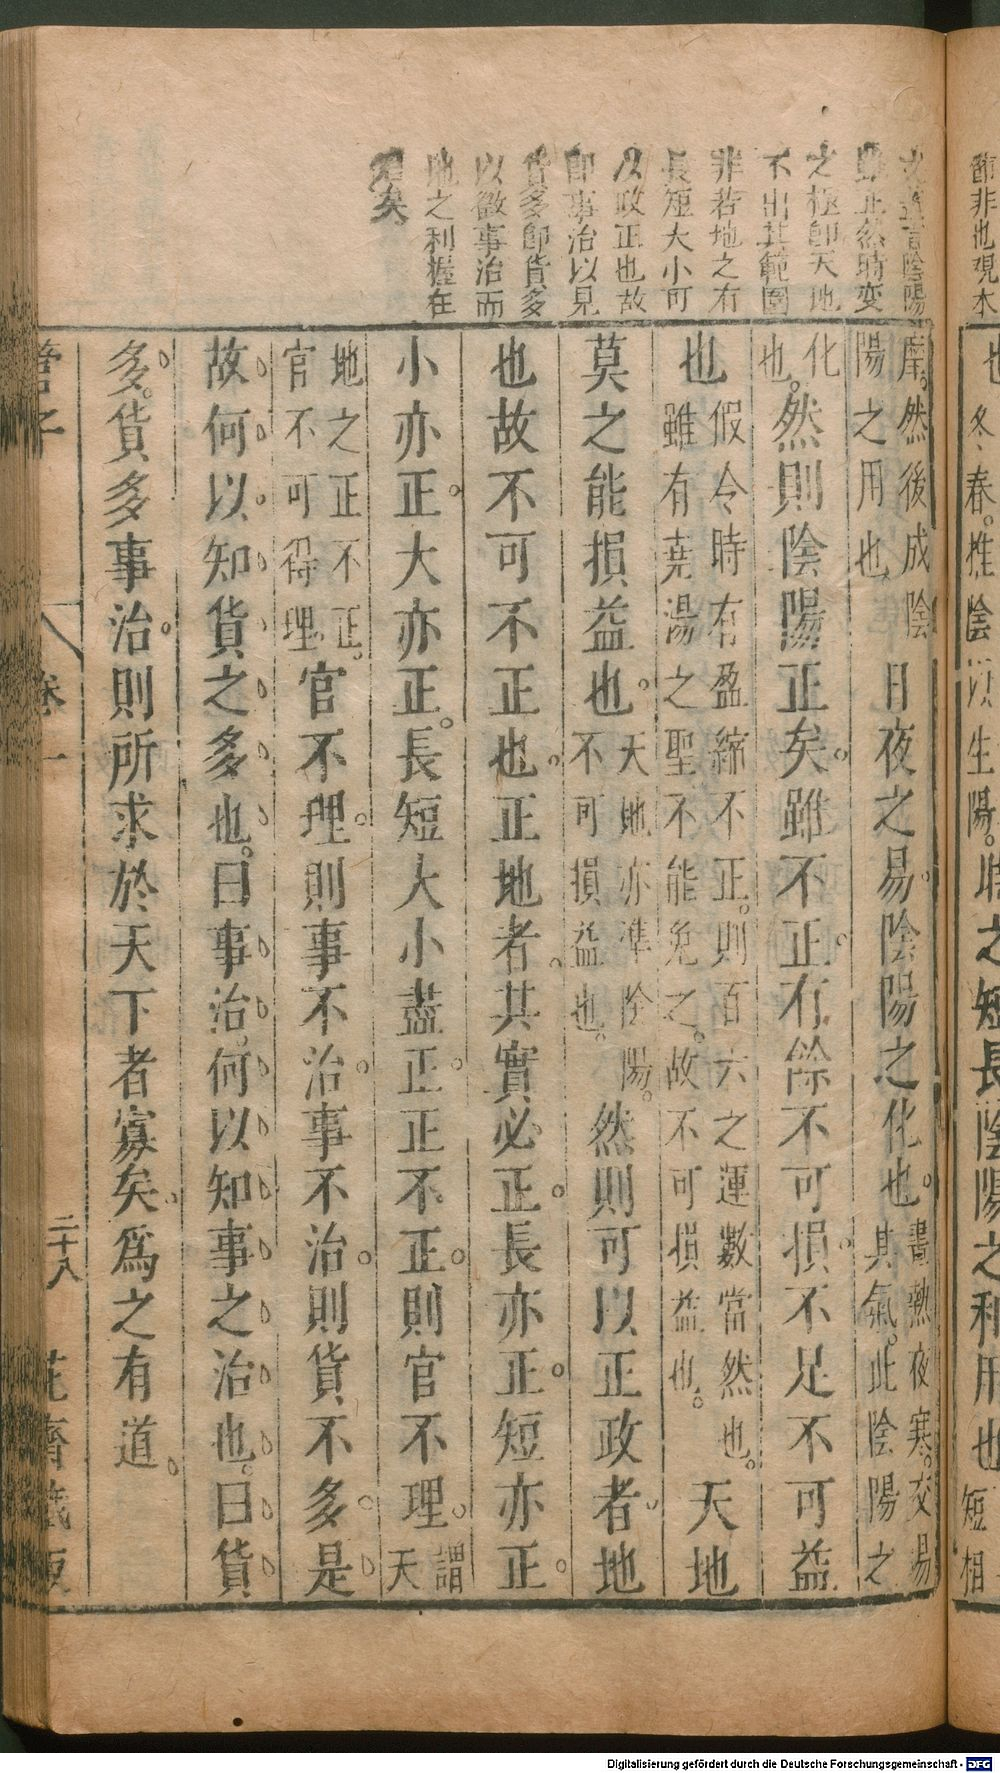 節非也覌木
也冬春。推陰以生陽。時之短長陰陽之利用也短相
之極即天地
不出其範圍
非若地之有
長短大小可
以政正也故
即事治以見
貨多即貨多
以徴事治而
地之利握在
君矣
摩。然後成陰
陽之用也
日夜之易。陰陽之化也。
晝熱夜寒。交易
其氣。此陰陽之
化
也。
然則陰陽正矣。雖不正。有餘不可損。不足不可益
也
假令時有盈縮不正。則百六之運數當然也。
雖有堯湯之聖不能免之。故不可損益也。
天地
莫之能損益也。
天地亦準陰陽。
不可損益也。
然則可以正政者。地
也故不可不正也。正地者。其實必正。長亦正。短亦正。
小亦正。大亦正。長短大小盡正。正不正。則官不理。
謂
天
地之正不正。
官不可得理。
官不理。則事不治。事不治。則貨不多。是
故何以知貨之多也。曰事治。何以知事之治也。曰貨
多。貨多事治。則所求於天下者寡矣。爲之有道。
管子
卷一
二十八
花齋藏板
Digitalisierung gefördert durch die Deutsche Forschungsgemeinschaft - DFG